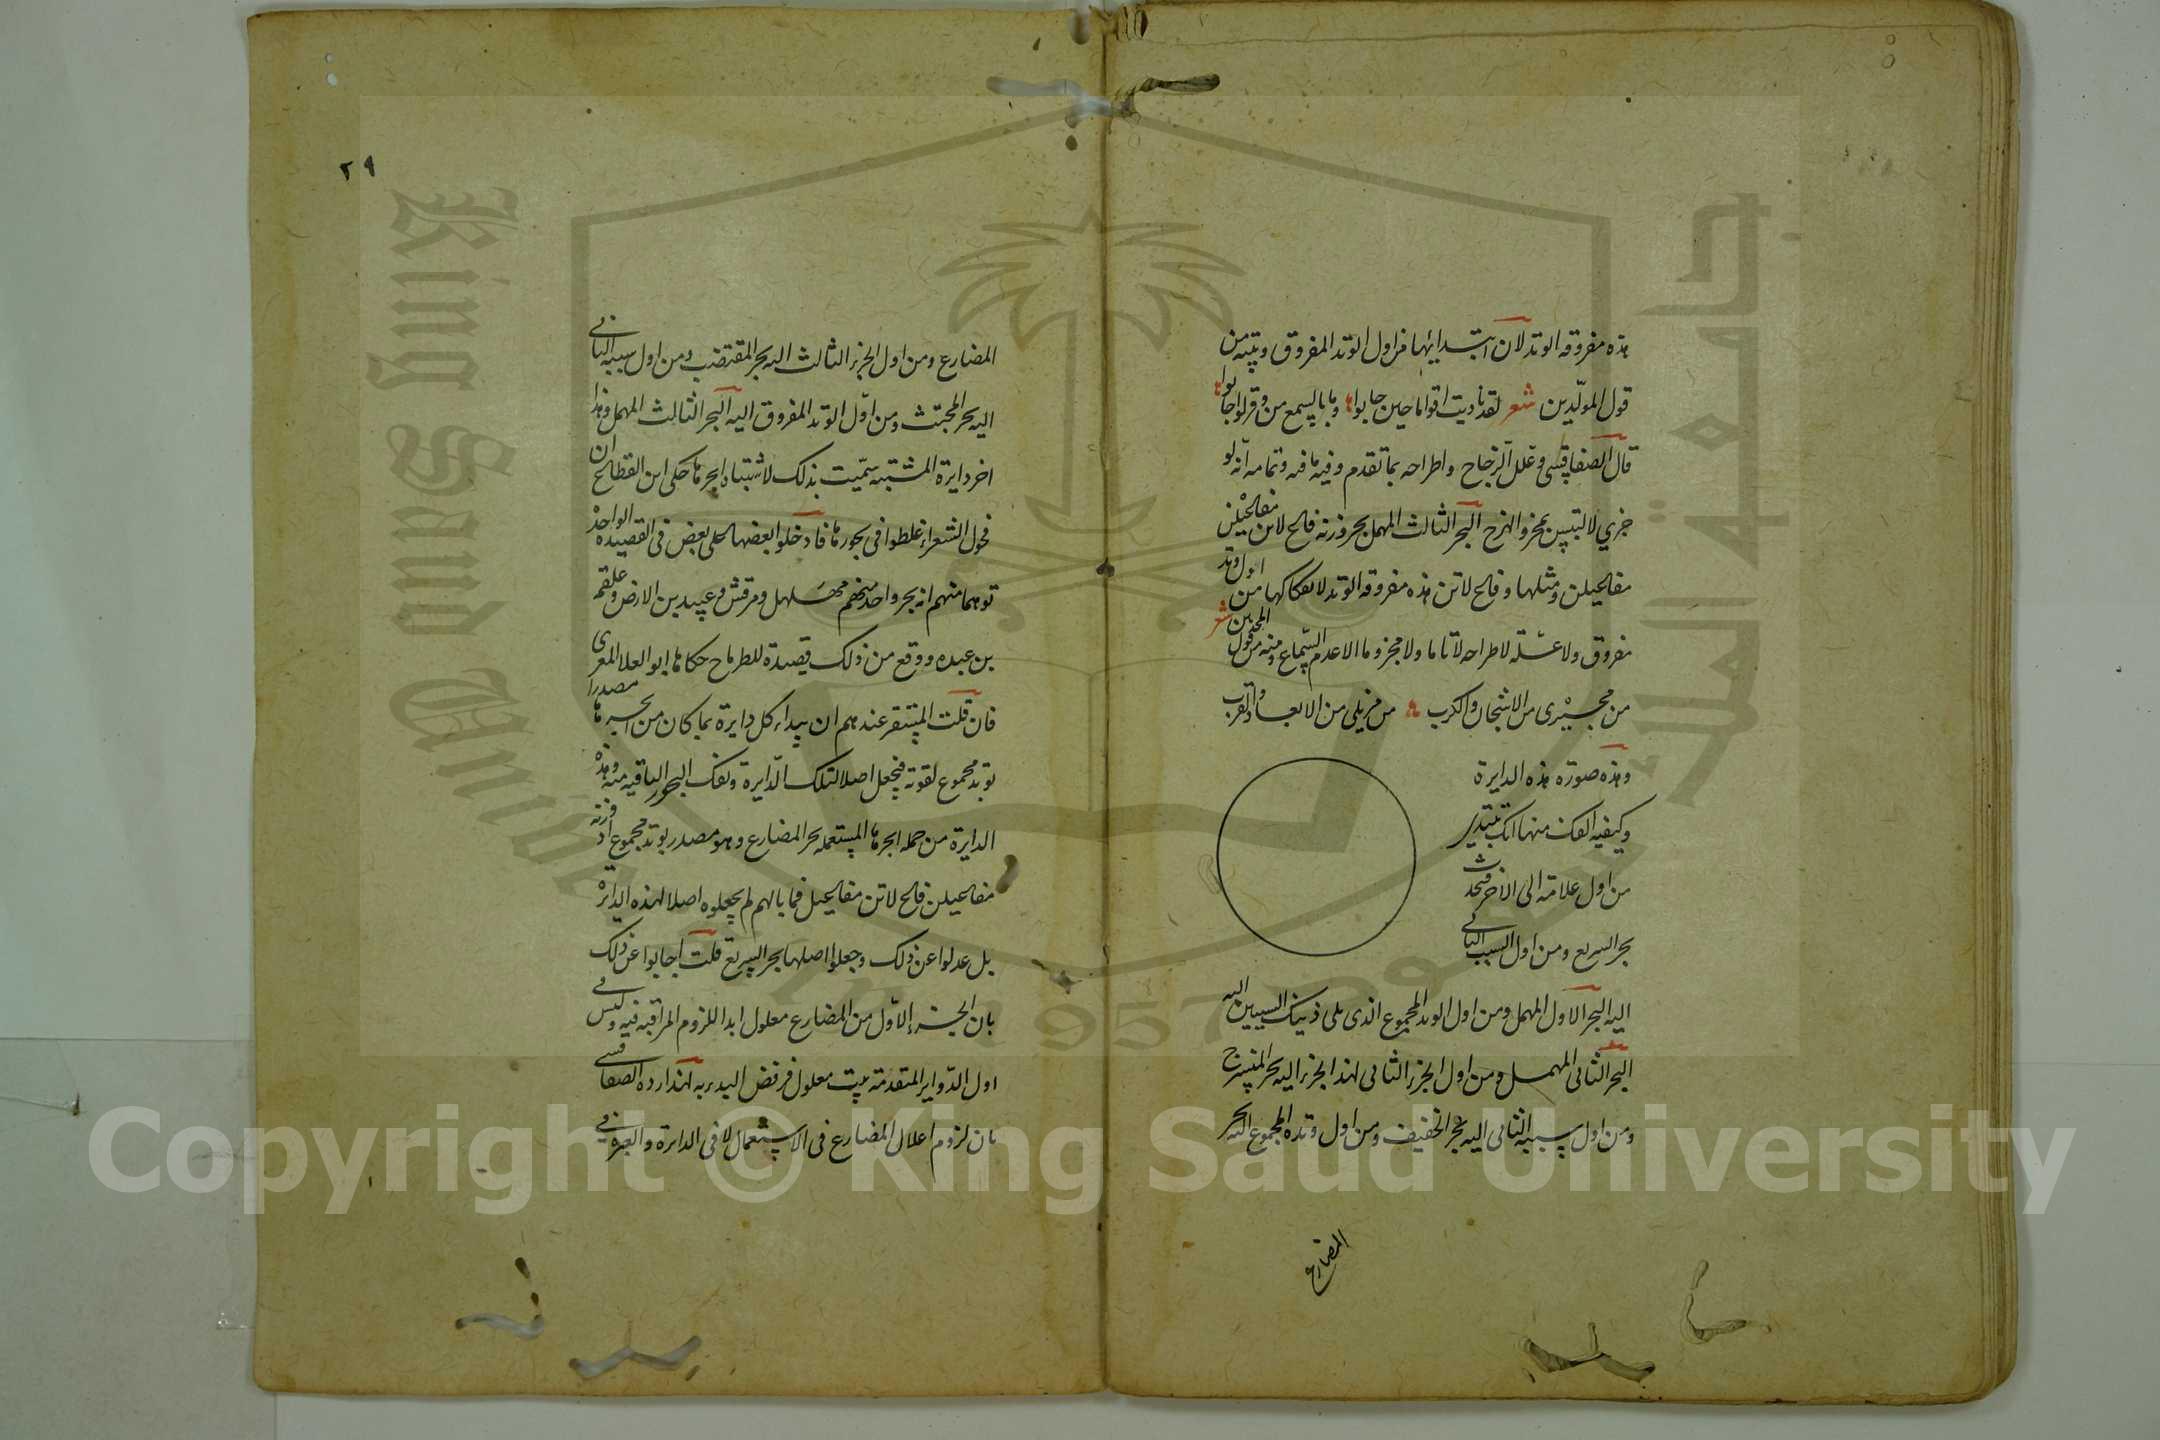 هذه مفروقه الوتد لان ابتدائها من اول الوتد المفروق وبيته من
قول المولّدين شعر لقد ناديت اقواما حين جابوا ها وما بالسمع من وقر لو اجابوا ها
قال الصفاقسى وعلل الزجاج واطراحه بما تقدم وفيه ما فيه وتمامه انه لو
جزي لالتبس بمجزو الهزج البحر الثالث المهمل بحر وزنه فاع لاتن مفاعيلن
مفاعيلن ومثلها وفاع لاتن هذه مفروقه الوتد لانفكاكها من اول وتد
مفروق ولا علّة لاطراحه لا تاما ولا مجزوما الا عدم السّماع ومنه من قول المحدثين شعر
من مجيرى من الاشجان والكرب ها من مزيلى من الابعاد والقرب
وهذه صورة هذه الدايرة
وكيفيه الفك منها انك تبتدىر
من اول علامة الى الاخر فيحدث
بحر السريع ومن اول السبب الثانى
اليه البحر الاول المهمل ومن اول الوتد المجموع الذى يلى ذينك السببين اليه
البحر الثانى المهمل ومن اول الجزء الثانى لهذا الجزء اليه بحر المنسرح
ومن اول سببه الثانى اليه بحر الخفيف ومن اول وتده المجموع اليه بحر
المضارع
٢٩
المضارع ومن اول الجزء الثالث اليه بحر المقتضب ومن اول سببه الثانى
اليه بحر المجتث ومن اوّل الوتد المفروق اليه البحر الثالث المهمل وهذا
اخر دايرة المشتبه سمّيت بذلك لاشتباه ابحرها حكى ابن القطاع ان
فحول الشعراء غلطوا فى بحورها فادخلوا بعضها على بعض فى القصيده الواحدة
توهما منهم انه بحر واحد منهم مهلهل ومرقش وعبيد بن الابرص وعلقمه
بن عبده ووقع من ذلك قصيدة للطرماح حكاها ابو العلا المعرى
فان قلت المستقر عندهم ان يبداء كل دايرة بما كان من ابحرها مصدرا
بوتد مجموع لقوته فيجعل اصلا لتلك الدّايرة وتفك البحور الباقيه منه وهذه
الدايرة من جمله ابحرها المستعمله بحر المضارع وهو مصدر بوتد مجموع اذ وزنه
مفاعيلن فاع لاتن مفاعيلن فما بالهم لم يجعلوه اصلا لهذه الدايرة
بل عدلوا عن ذلك وجعلوا اصلها بحر السريع قلت اجابوا عن ذلك
بان الجزء الاوّل من المضارع معلول ابدا للزوم المراقبه فيه وليس فى
اول الدّواير المتقدمة بيت معلول فرفض البدء به لهذا رده الصفاقسى
بان لزوم اعلال المضارع فى الاستعمال لا فى الدايرة والعبره فى
King Saud University
جامعة الملك سعود
1957
Copyright © King Saud University